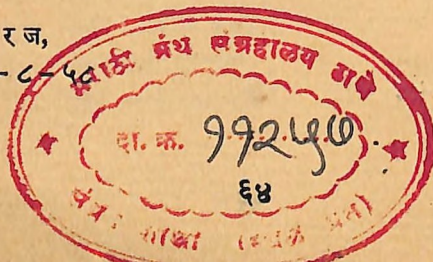 र ज,
-८-५८
मराठी ग्रंथ संग्रहालय ठाणे
दा. क्र. ११२५७
६४
शाखा